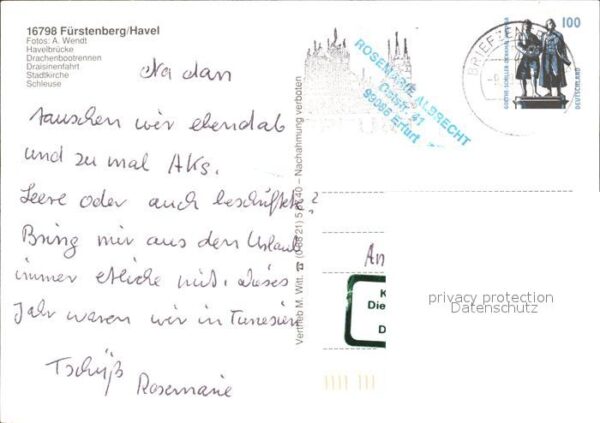 16798 Fürstenberg/Havel
Fotos: A. Wendt
Havelbrücke
Drachenbootrennen
Draisinenfahrt
Stadtkirche
Schleuse
Na dan
tauschen wir ebend ab
und zu mal AKs.
Leere oder auch beschriftete?
Bring mir aus den Urlaub
immer etliche mit. dieses
Jahr waren wir in Tunesien
Tschüß
Rosemarie
Vertrieb M. Witt. ☎ Nachahmung verboten
ROSEMARIE ALBRECHT
99086 Erfurt
BRIEFZEN
100
GOETHE-SCHILLER-DENKMAL
DEUTSCHLAND
An
K
Die
D
privacy protection
Datenschutz